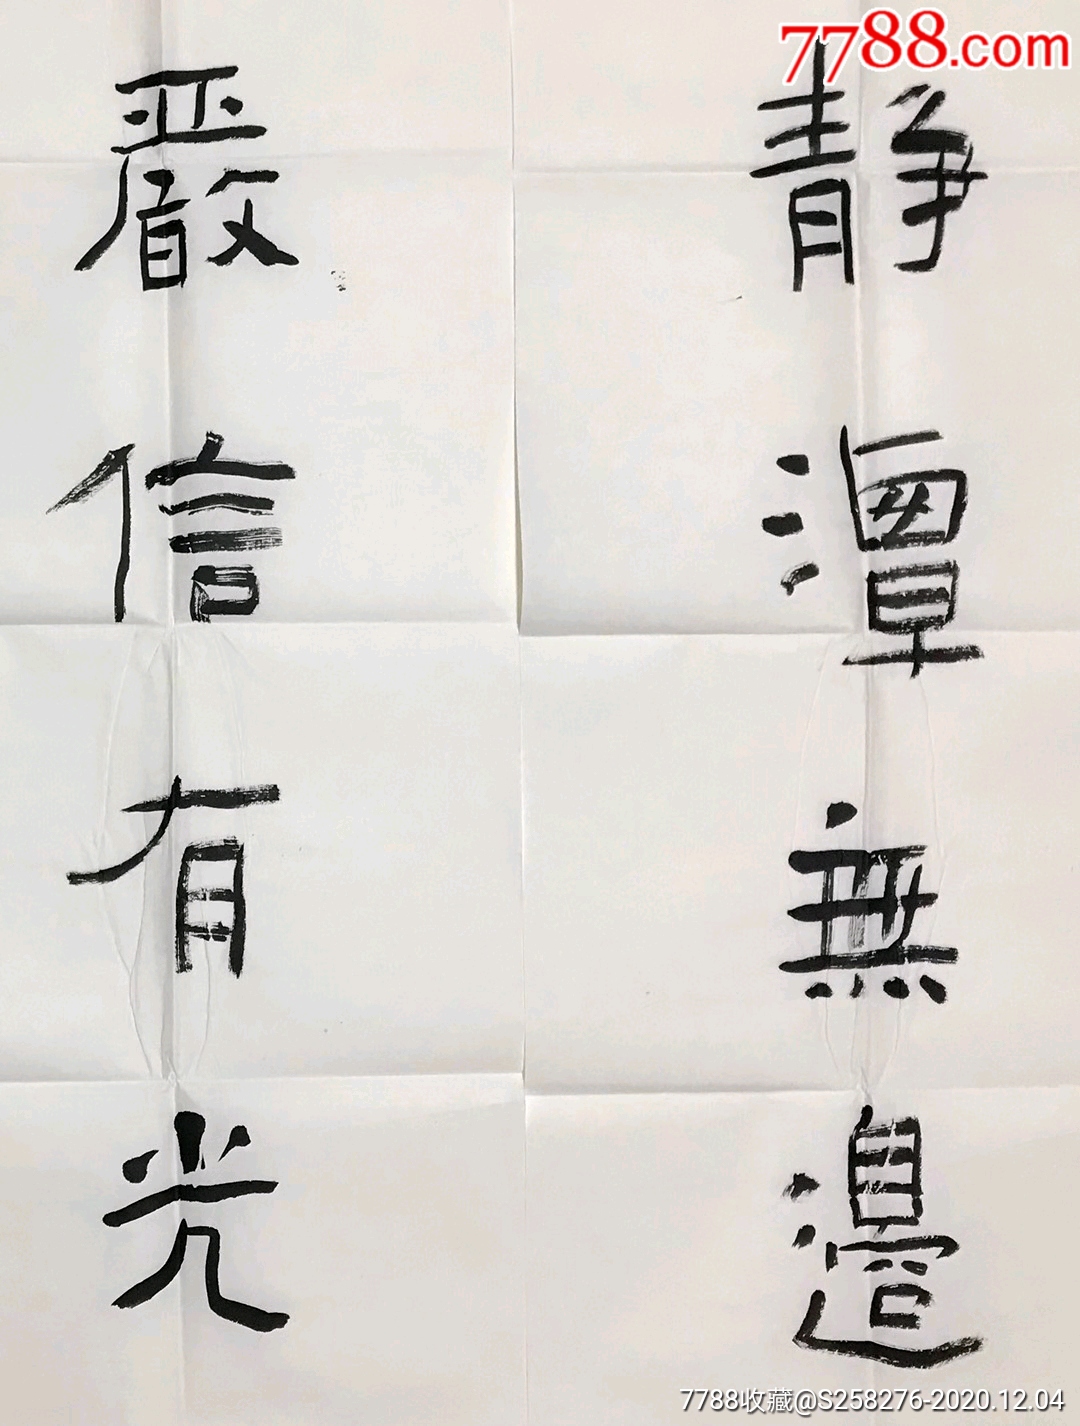 7788.com
静潭無邊
嚴信有光
7788收藏@S258276-2020.12.04